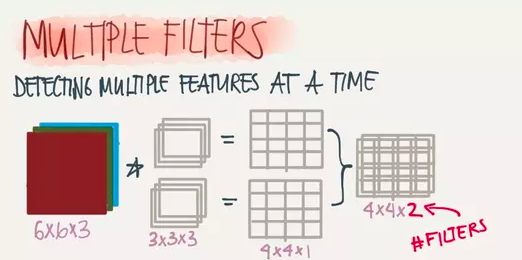 MULTIPLE FILTERS
DETECTING MULTIPLE FEATURES AT A TIME
* = =
6x6x3
3x3x3
4x4x1
4x4x2
#FILTERS